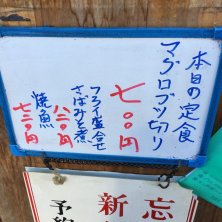 本日の定食
マグロブツ切り
七〇〇円
フライ盛合せ
さばみそ煮
八二〇円
焼魚
七三〇円
忘
新
予約